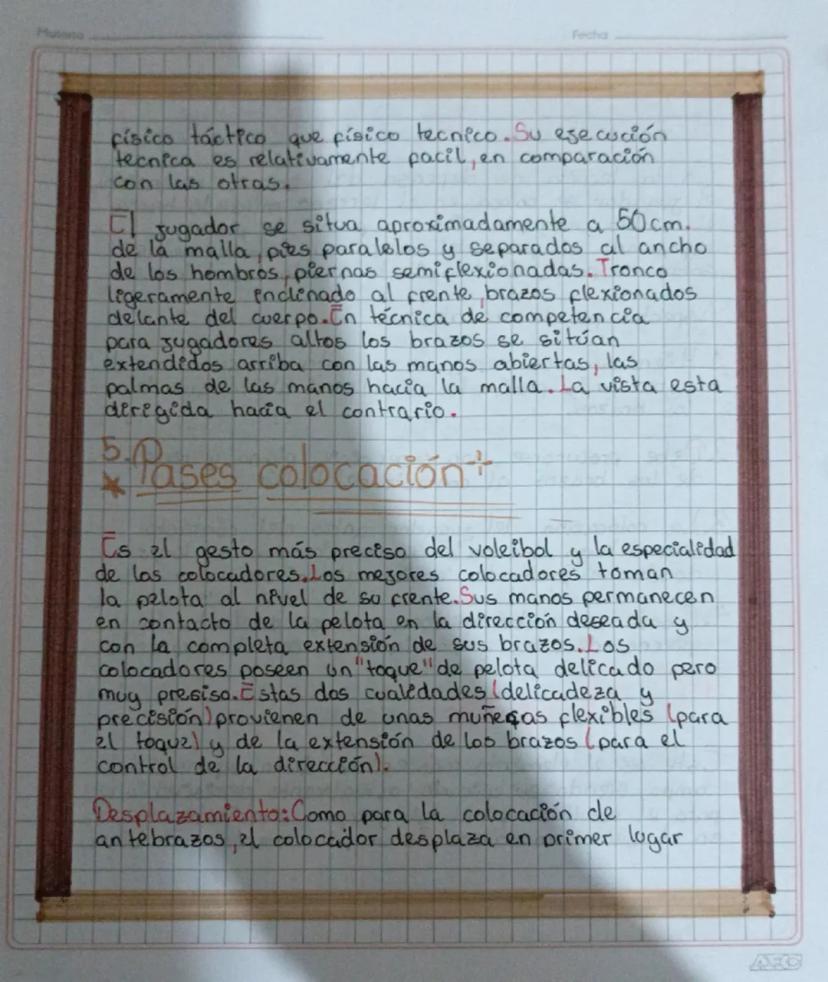 Materia
Fecha
físico táctico que físico tecnico. Su esecusión
tecnica es relativamente facil, en comparación
con las otras.
El jugador se situa aproximadamente a 50cm.
de la malla, pies paralelos y separados al ancho
de los hombros, piernas semiflexionadas. Tronco
ligeramente inclinado al frente, brazos flexionados
delante del cuerpo. En técnica de competencia
para jugadores altos los brazos se sitúan
extendidos arriba con las manos abiertas, las
palmas de las manos hacia la malla. La vista esta
dirigida hacia el contrario.
5. Pases colocación+
Es el gesto más preciso del voleibol y la especialidad
de los colocadores. Los mejores colocadores toman
la pelota al nivel de su frente. Sus manos permanecen
en contacto de la pelota en la dirección deseada y
con la completa extensión de sus brazos. Los
colocadores poseen un "toque" de pelota delicado pero
muy presiso. Estas dos cualidades (delicadeza y
precisión) provienen de unas muñecas flexibles (para
el toque) y de la extensión de los brazos (para el
control de la dirección).
Desplazamiento: Como para la colocación de
antebrazos, el colocador desplaza en primer lugar
ABC